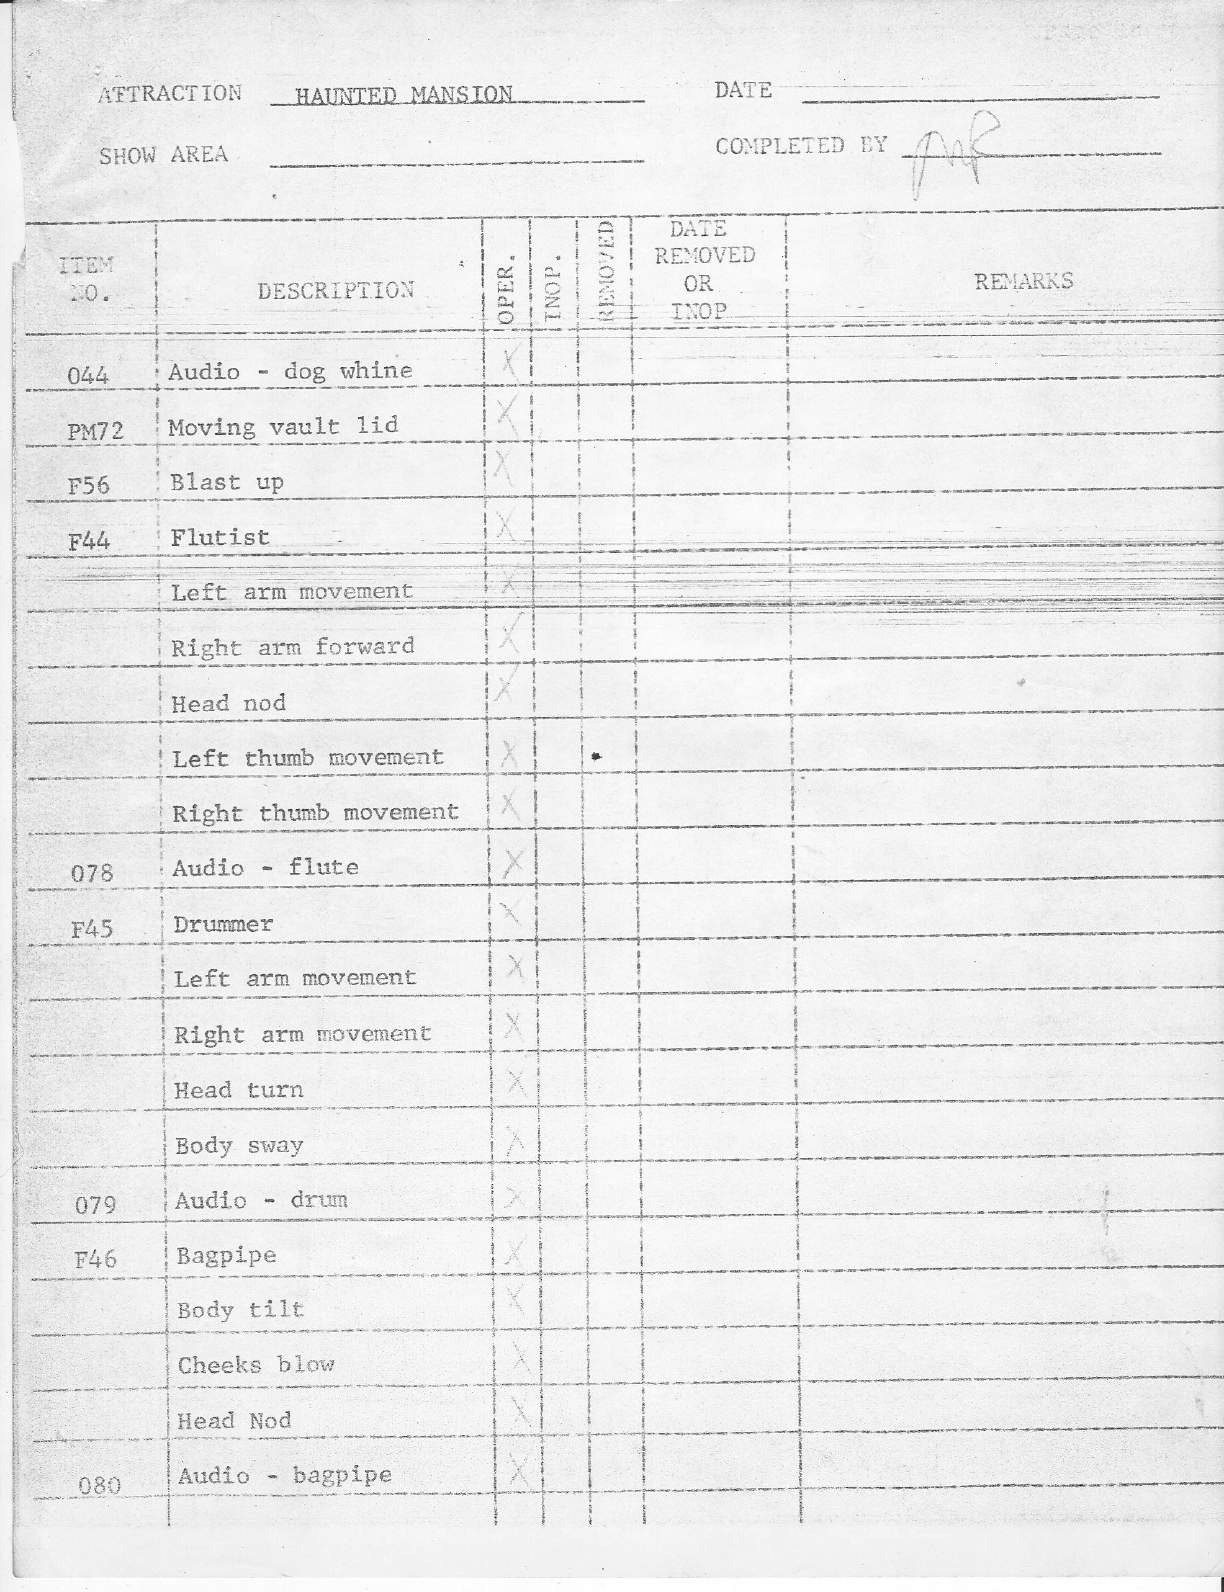 ATTRACTION HAUNTED MANSION DATE
SHOW AREA COMPLETED BY
ITEM NO. DESCRIPTION OPER. INOP. REMOVED DATE REMOVED OR INOP REMARKS
044 Audio - dog whine X
PM72 Moving vault lid X
F56 Blast up X
F44 Flutist X
Left arm movement X
Right arm forward X
Head nod X
Left thumb movement X
Right thumb movement X
078 Audio - flute X
F45 Drummer X
Left arm movement X
Right arm movement X
Head turn X
Body sway X
079 Audio - drum X
F46 Bagpipe X
Body tilt X
Cheeks blow X
Head Nod X
080 Audio - bagpipe X